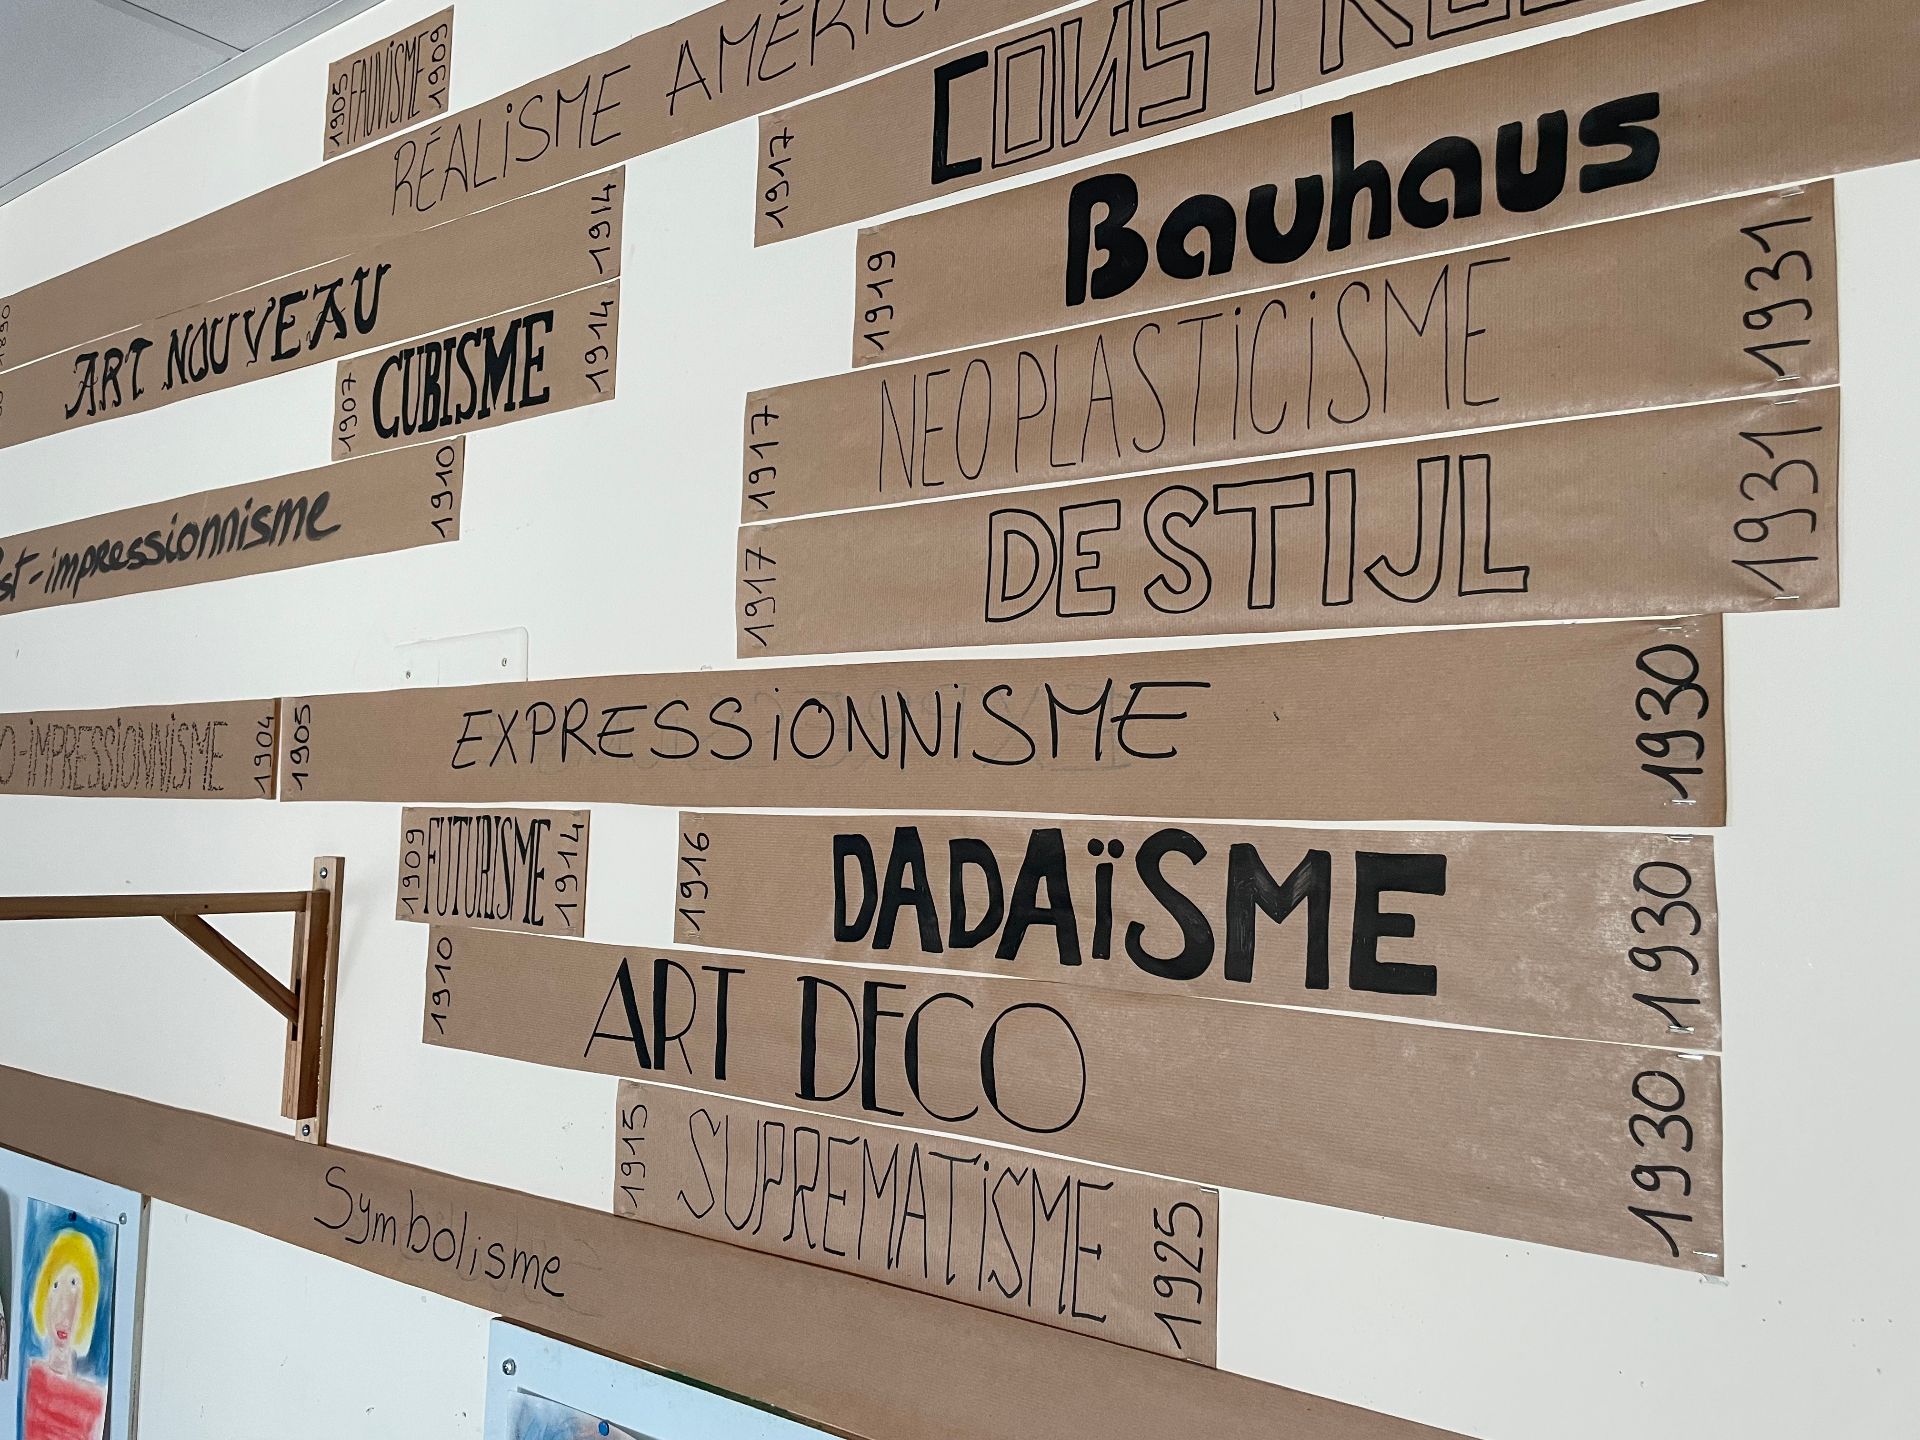 1905 FAUVISME 1909
RÉALISME
1917
Bauhaus
1919
ART NOUVEAU 1914
1890
1907 CUBISME 1914
1917 NEOPLASTICISME 1931
1917 DE STIJL 1931
impressionnisme 1910
IMPRESSIONNISME 1904
1905 EXPRESSIONNISME 1930
1909 FUTURISME 1914
1916 DADAÏSME 1930
1910 ART DECO 1930
1915 SUPREMATISME 1925
Symbolisme